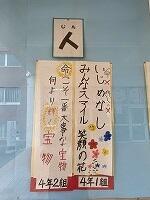 じん
人
いじめなし
みなスマイル
笑顔の花
4年1組
命こそ一番大事な宝物
何より
宝物
4年2組